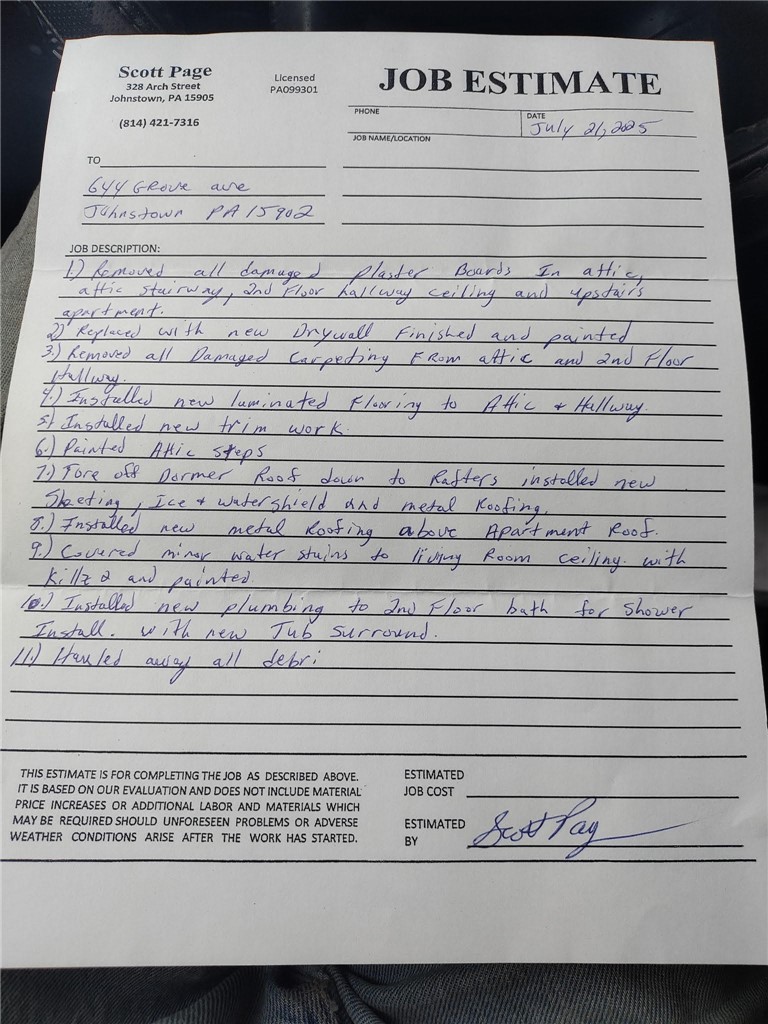 Scott Page
328 Arch Street
Johnstown, PA 15905
(814) 421-7316
Licensed
PA099301
JOB ESTIMATE
PHONE
DATE
July 21, 2025
JOB NAME/LOCATION
TO
644 Grove ave
Johnstown PA 15902
JOB DESCRIPTION:
1.) Removed all damaged plaster Boards In attic,
attic stairway, 2nd Floor hallway ceiling and upstairs
apartment.
2) Replaced with new Drywall Finished and painted
3.) Removed all Damaged Carpeting From attic and 2nd Floor
Hallway.
4.) Installed new luminated Flooring to Attic & Hallway.
5.) Installed new trim work.
6.) Painted Attic steps
7.) Tore off Dormer Roof down to Rafters installed new
Sheeting, Ice & watershield and metal Roofing.
8.) Installed new metal Roofing above Apartment Roof.
9.) Covered minor water stains to living Room ceiling. with
Killz 2 and painted.
10.) Installed new plumbing to 2nd Floor bath for Shower
Install. with new Tub Surround.
11.) Hauled away all debri
THIS ESTIMATE IS FOR COMPLETING THE JOB AS DESCRIBED ABOVE.
IT IS BASED ON OUR EVALUATION AND DOES NOT INCLUDE MATERIAL
PRICE INCREASES OR ADDITIONAL LABOR AND MATERIALS WHICH
MAY BE REQUIRED SHOULD UNFORESEEN PROBLEMS OR ADVERSE
WEATHER CONDITIONS ARISE AFTER THE WORK HAS STARTED.
ESTIMATED
JOB COST
ESTIMATED
BY
Scott Pag